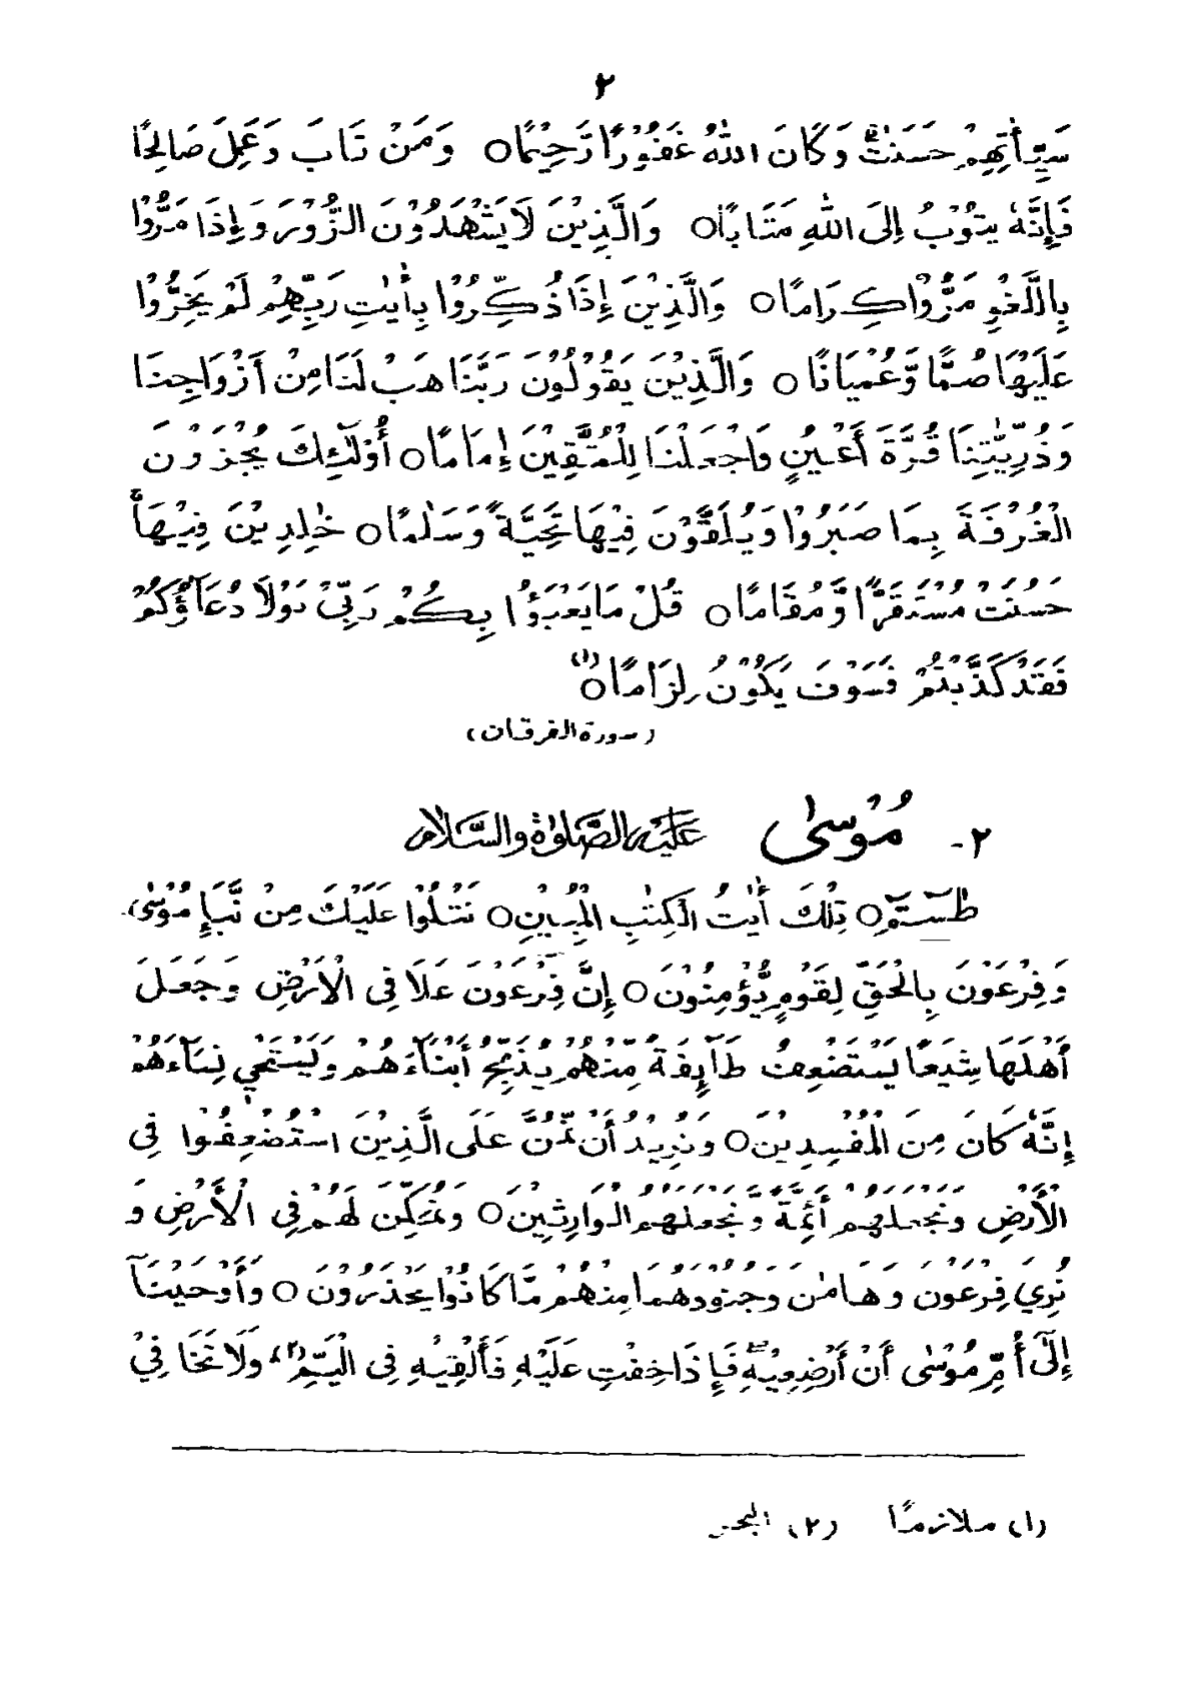 ٢
سَيِّأٰتِهِمْ حَسَنٰتٍ وَكَانَ اللّٰهُ غَفُوْرًا رَّحِيْمًا○ وَمَنْ تَابَ وَعَمِلَ صَالِحًا
فَإِنَّهٗ يَتُوْبُ إِلَى اللّٰهِ مَتَابًا○ وَالَّذِيْنَ لَا يَشْهَدُوْنَ الزُّوْرَ وَإِذَا مَرُّوْا
بِاللَّغْوِ مَرُّوْا كِرَامًا○ وَالَّذِيْنَ إِذَا ذُكِّرُوْا بِأٰيٰتِ رَبِّهِمْ لَمْ يَخِرُّوْا
عَلَيْهَا صُمًّا وَّعُمْيَانًا○ وَالَّذِيْنَ يَقُوْلُوْنَ رَبَّنَا هَبْ لَنَا مِنْ أَزْوَاجِنَا
وَذُرِّيّٰتِنَا قُرَّةَ أَعْيُنٍ وَاجْعَلْنَا لِلْمُتَّقِيْنَ إِمَامًا○ أُوْلٰٓئِكَ يُجْزَوْنَ
الْغُرْفَةَ بِمَا صَبَرُوْا وَيُلَقَّوْنَ فِيْهَا تَحِيَّةً وَسَلٰمًا○ خٰلِدِيْنَ فِيْهَا
حَسُنَتْ مُسْتَقَرًّا وَّمُقَامًا○ قُلْ مَا يَعْبَؤُا بِكُمْ رَبِّيْ لَوْلَا دُعَآؤُكُمْ
فَقَدْ كَذَّبْتُمْ فَسَوْفَ يَكُوْنُ لِزَامًا(١)○
(سورة الفرقان)
٢- مُوْسٰى عَلَيْهِ الصَّلٰوةُ وَالسَّلَامُ
طٰسٓمّٓ○ تِلْكَ أٰيٰتُ الْكِتٰبِ الْمُبِيْنِ○ نَتْلُوْا عَلَيْكَ مِنْ نَّبَإِ مُوْسٰى
وَفِرْعَوْنَ بِالْحَقِّ لِقَوْمٍ يُّؤْمِنُوْنَ○ إِنَّ فِرْعَوْنَ عَلَا فِى الْأَرْضِ وَجَعَلَ
أَهْلَهَا شِيَعًا يَسْتَضْعِفُ طَآئِفَةً مِّنْهُمْ يُذَبِّحُ أَبْنَآءَهُمْ وَيَسْتَحْيِ نِسَآءَهُمْ
إِنَّهٗ كَانَ مِنَ الْمُفْسِدِيْنَ○ وَنُرِيْدُ أَنْ نَّمُنَّ عَلَى الَّذِيْنَ اسْتُضْعِفُوْا فِى
الْأَرْضِ وَنَجْعَلَهُمْ أَئِمَّةً وَّنَجْعَلَهُمُ الْوَارِثِيْنَ○ وَنُمَكِّنَ لَهُمْ فِى الْأَرْضِ وَ
نُرِيَ فِرْعَوْنَ وَهَامٰنَ وَجُنُوْدَهُمَا مِنْهُمْ مَّا كَانُوْا يَحْذَرُوْنَ○ وَأَوْحَيْنَآ
إِلٰٓى أُمِّ مُوْسٰى أَنْ أَرْضِعِيْهِ فَإِذَا خِفْتِ عَلَيْهِ فَأَلْقِيْهِ فِى الْيَمِّ(٢) وَلَا تَخَافِيْ
(١) ملازمًا (٢) البحر